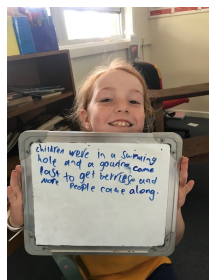 children were in a swimming
hole and a came
past to get berries and
more people came along.